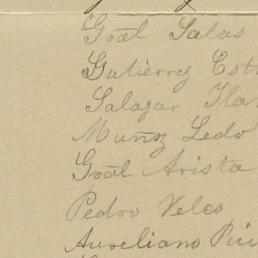 Gral Salas
Gutiérrez
Salazar
Muñoz Ledo
Gral Arista
Pedro Veles
Aureliano